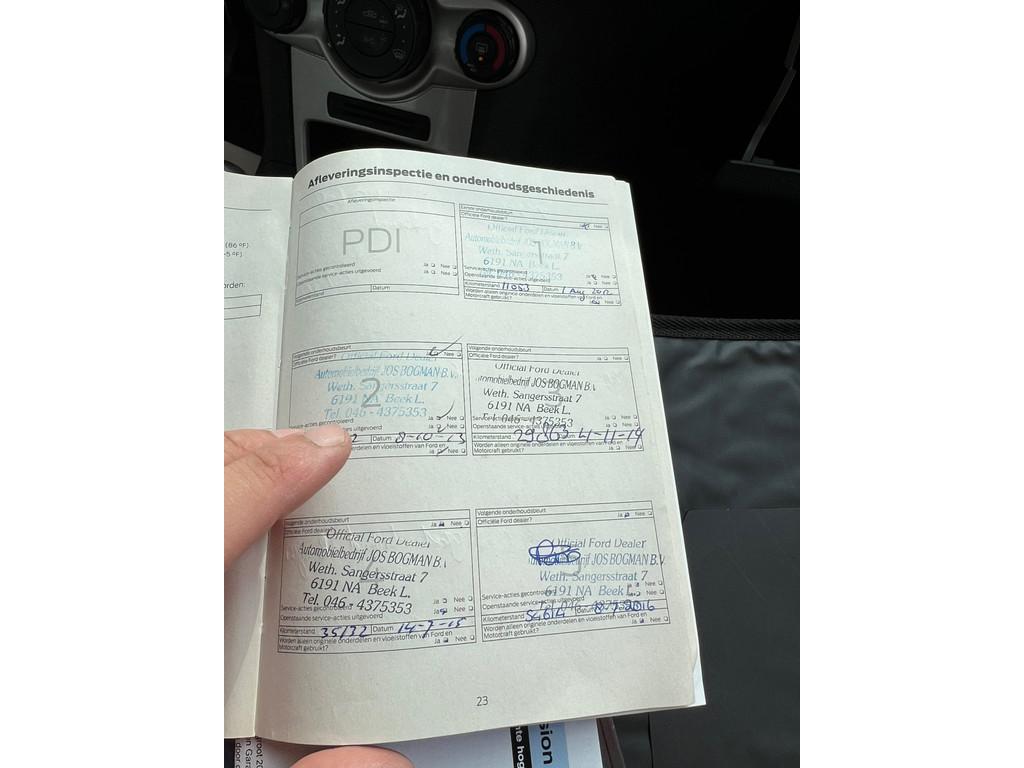 Afleveringsinspectie en onderhoudsgeschiedenis
(86 °F)
-5 °F)
orden:
Afleveringsinspectie
PDI
Service-acties gecontroleerd Ja Nee
Openstaande service-acties uitgevoerd Ja Nee
Kilometerstand Datum
Eerste onderhoudsbeurt
Officiële Ford dealer? Nee
Official Ford Dealer
Automobielbedrijf JOS BOGMAN B.V.
Weth. Sangersstraat 7
6191 NA Beek L.
1
Service-acties gecontroleerd Ja Nee
Openstaande service-acties uitgevoerd Ja Nee
Kilometerstand 11053 Datum 1 Aug 2012
Worden alleen originele onderdelen en vloeistoffen van Ford en
Motorcraft gebruikt? Nee
Volgende onderhoudsbeurt
Officiële Ford dealer? Nee
Official Ford Dealer
Automobielbedrijf JOS BOGMAN B.V.
Weth. Sangersstraat 7
2
6191 NA Beek L.
Tel. 046 - 4375353
Service-acties gecontroleerd Ja Nee
acties uitgevoerd Ja Nee
2 Datum 8-10-13
onderdelen en vloeistoffen van Ford en
Ja Nee
Volgende onderhoudsbeurt
Officiële Ford dealer? Ja Nee
Official Ford Dealer
Automobielbedrijf JOS BOGMAN B.V.
Weth. Sangersstraat 7
3
6191 NA Beek L.
Tel. 046 - 4375353
Openstaande service-acties
Kilometerstand 29863 Datum 4-11-14
Worden alleen originele onderdelen en vloeistoffen van Ford en
Motorcraft gebruikt? Ja Nee
Volgende onderhoudsbeurt
Officiële Ford dealer? Ja Nee
Official Ford Dealer
Automobielbedrijf JOS BOGMAN B.V.
Weth. Sangersstraat 7
4
6191 NA Beek L.
Tel. 046 - 4375353
Service-acties gecontroleerd Ja Nee
Openstaande service-acties uitgevoerd Ja Nee
Kilometerstand 35132 Datum 14-7-15
Worden alleen originele onderdelen en vloeistoffen van Ford en
Motorcraft gebruikt? Ja Nee
Volgende onderhoudsbeurt
Officiële Ford dealer? Ja Nee
Official Ford Dealer
JOS BOGMAN B.V.
Weth. Sangersstraat 7
5
6191 NA Beek L.
Service-acties gecontroleerd Ja Nee
Openstaande service-acties uitgevoerd Ja Nee
Kilometerstand Datum 8-7-2016
Worden alleen originele onderdelen en vloeistoffen van Ford en
Motorcraft gebruikt? Ja Nee
23